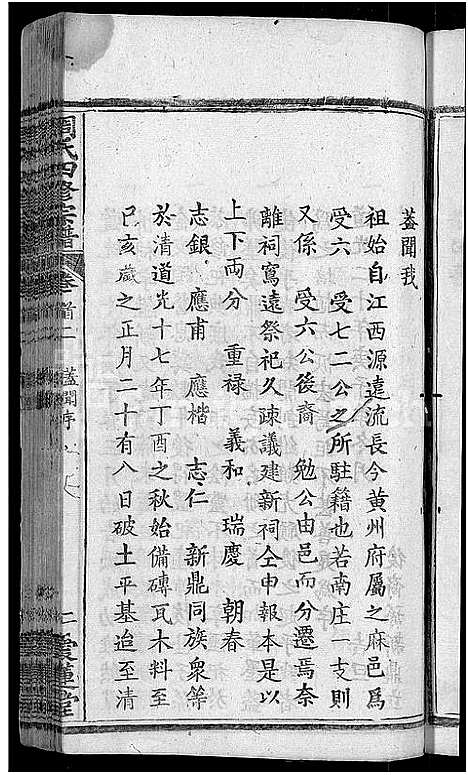 蓋聞我
祖始自江西源遠流長今黃州府屬之麻邑爲
受六 受七二公之所駐籍也若南庄一支則
又係 受六公後裔 勉公由邑而分遷焉奈
離祠寫遠祭祀久疎議建新祠仝申報本是以
上下两分 重禄 義和 瑞慶 朝春
志銀 應甫 應楷 志仁 新鼎同族衆等
於清道光十七年丁酉之秋始備磚瓦木料至
已亥歲之正月二十有八日破土平基迨至清
周氏四修宗譜 卷首二 蓋聞序
愛蓮堂